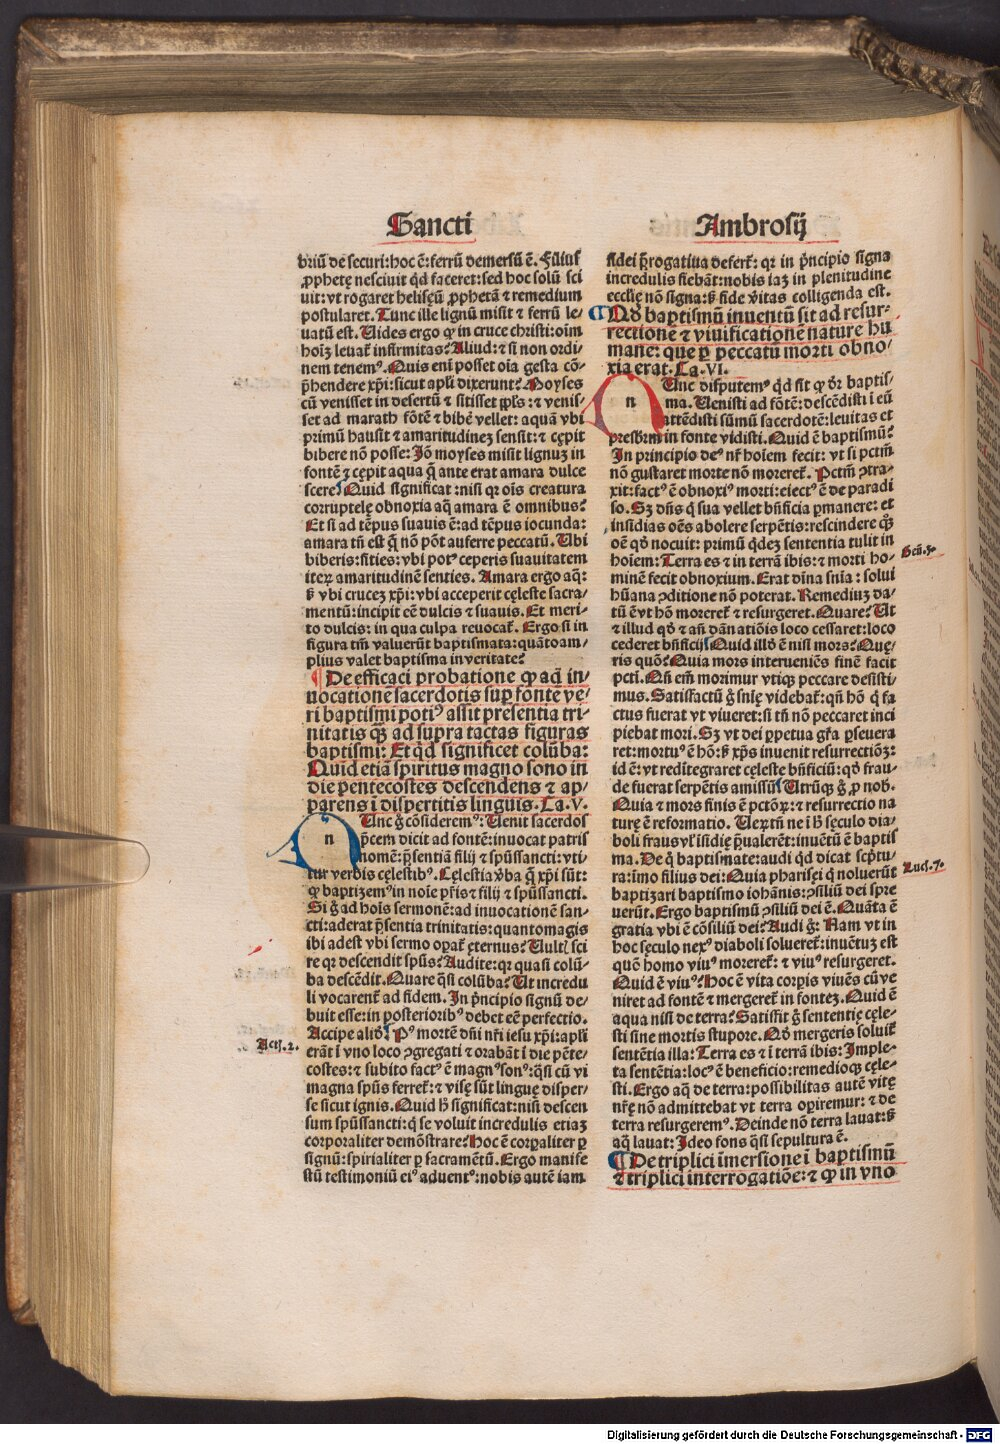 Sancti
Ambrosij
briũ de securi: hoc ẽ: ferrũ demersũ ẽ.
ꝓphetę nesciuit qd̛ faceret: sed hoc solũ sci
uit: vt rogaret helisęũ ꝓphetã ⁊ remedium
postularet. Tunc ille lignũ misit ⁊ ferrũ le⸗
uatũ est. Uides ergo ꝙ in cruce christi: oĩm
hoĩʒ leuat̃ infirmitas? Aliud: ⁊ si non ordi⸗
nem tenemꝰ. Quis enĩ posset oĩa gesta cõ⸗
p̃hendere xp̃i: sicut apl̃i dixerunt? Moyses
cũ venisset in desertũ ⁊ sitisset pp̃ls: ⁊ venis⸗
set ad marath fõtẽ ⁊ bibẽ vellet: aquã vbi
primũ hausit ⁊ amaritudineʒ sensit: ⁊ cępit
bibere nõ posse: Jõ moyses misit lignuʒ in
fontẽ ⁊ cępit aqua q̃ ante erat amara dulce
scere. Quid significat: nisi qꝛ oĩs creatura
corruptelę obnoxia aq̃ amara ẽ omnibus?
Et si ad tẽpus suauis ẽ: ad tẽpus iocunda:
amara tñ est q̃ nõ põt auferre peccatũ. Ubi
biberis: sities: vbi potꝰ ceperis suauitatem
iteꝝ amaritudinẽ senties. Amara ergo aq̃:
ß vbi cruceʒ xp̃i: vbi acceperit cęleste sacra⸗
mentũ: incipit eẽ dulcis ⁊ suauis. Et meri⸗
to dulcis: in qua culpa reuocat̃. Ergo si in
figura tm̃ valuerũt baptismata: quãto am⸗
plius valet baptisma in veritate?
¶ De efficaci probatione ꝙ ad in⸗
uocationẽ sacerdotis sup̲ fontẽ ve⸗
ri baptismi potiꝰ assit presentia tri⸗
nitatis q̃ʒ ad supra tactas figuras
baptismi: Et qd̛ significet colũba:
Quid etiã spiritus magno sono in
die pentecostes descendens ⁊ ap⸗
parens ĩ dispertitis linguis. Ca. V.
n Unc g̊ cõsideremꝰ: Uenit sacerdos
p̃cem dicit ad fontẽ: inuocat patris
nomẽ: p̃sentiã filij ⁊ sp̃ussancti: vti⸗
tur verbis cęlestibꝰ. Cęlestia v̓ba q̃ xp̃i sũt:
ꝙ baptizemꝰ in noĩe pr̃is ⁊ filij ⁊ sp̃ussancti.
Si g̊ ad hoĩs sermonẽ: ad inuocationẽ san⸗
cti: aderat p̃sentia trinitatis: quantomagis
ibi adest vbi sermo oꝑat̃ ęternus? Uultis sci
re qꝛ descendit sp̃us? Audite: qꝛ quasi colũ⸗
ba descẽdit. Quare q̃si colũba? Ut incredu
li vocarent̃ ad fidem. Jn p̃ncipio signũ de⸗
buit esse: in posterioribꝰ debet eẽ perfectio.
Accipe aliud. Pꝰ mortẽ dñi nr̃i iesu xp̃i: apl̃i
erãt ĩ vno loco ↄgregati ⁊ orabãt ĩ die pẽte⸗
costes: ⁊ subito factꝰ ẽ magnꝰ sonꝰ: q̃si cũ vi
magna sp̃us ferret̃: ⁊ visę sũt linguę disper⸗
se sicut ignis. Quid h̃ significat: nisi descen
sum sp̃ussancti: q̊ se voluit incredulis etiaʒ
corporaliter demõstrare? Hoc ẽ corꝑaliter ꝑ
signũ: spirialiter ꝑ sacramẽtũ. Ergo manife
stũ testimoniũ eiꝰ aduentꝰ: nobis autẽ iam
Actꝭ. 2.
fidei p̃rogatiua defert̃: qꝛ in p̃ncipio signa
incredulis fiebãt: nobis iaʒ in plenitudine
eccl̃ię nõ signa: ß fide v̓itas colligenda est.
¶ Qd̛ baptismũ inuentũ sit ad resur⸗
rectionẽ ⁊ viuificationẽ nature hu
mane: que ꝑ peccatũ morti obno⸗
xia erat. Ca. VI.
n Unc disputemꝰ qd̛ sit ꝙ d̛r baptis⸗
ma. Uenisti ad fõtẽ: descẽdisti ĩ eũ
attẽdisti sũmũ sacerdotẽ: leuitas et
presbr̃m in fonte vidisti. Quid ẽ baptismũ?
Jn principio deꝰ nr̃ hoĩem fecit: vt si pctm̃
nõ gustaret morte nõ moreret̃. Pctm̃ ↄtra⸗
xit: factꝰ ẽ obnoxiꝰ morti: eiectꝰ ẽ de paradi
so. Sʒ dñs q̊ sua vellet bñficia ꝑmanere: et
insidias oẽs abolere serpẽtis: rescindere q̊ʒ
oẽ qd̛ nocuit: primũ qdeʒ sententia tulit in
hoĩem: Terra es ⁊ in terrã ibis: ⁊ morti ho⸗
minẽ fecit obnoxium. Erat diĩna sñia: solui
hũana ↄditione nõ poterat. Remediuʒ da⸗
tũ ẽ vt hõ moreret̃ ⁊ resurgeret. Quare? Ut
⁊ illud qd̛ ⁊ añ dãnatiõis loco cessaret: loco
cederet bñficij. Quid illd̛ ẽ nisi mors? Quę⸗
ris quõ? Quia mors interueniẽs finẽ facit
pcti. Qñ em̃ morimur vtiqꝫ peccare desisti⸗
mus. Satisfactũ g̊ sñię videbat̃: qñ hõ q̊ fa
ctus fuerat vt viueret: si tñ nõ peccaret inci
piebat mori. Sʒ vt dei ꝑpetua gr̃a ꝑseuera
ret: mortuꝰ ẽ hõ: ß xp̃s inuenit resurrectiõeʒ:
id ẽ: vt redĩtegraret cęleste bñficiũ: qd̛ frau⸗
de fuerat serpẽtis amissũ. Utrũqꝫ g̊ ꝓ nob̃.
Quia ⁊ mors finis ẽ pctõꝝ: ⁊ resurrectio na
turę ẽ reformatio. Ueꝝtñ ne ĩ h̃ sęculo dia⸗
boli fraus vl̓ ĩsidię p̃ualerẽt: inuẽtũ ẽ baptis
ma. De q̊ baptismate: audi qd̛ dicat scp̃tu⸗
ra: ĩmo filius dei: Quia pharisęi q̊ noluerũt
baptizari baptismo iohãnis: ↄsiliũ dei spre
uerũt. Ergo baptismũ ↄsiliũ dei ẽ. Quãta ẽ
gratia vbi ẽ cõsiliũ dei? Audi g̊: Nam vt in
hoc sęculo nexꝰ diaboli solueret̃: inuẽtuʒ est
quẽ homo viuꝰ moreret̃: ⁊ viuꝰ resurgeret.
Quid ẽ viuꝰ? Hoc ẽ vita corꝑis viuẽs cũ ve
niret ad fontẽ ⁊ mergeret̃ in fonteʒ. Quid ẽ
aqua nisi de terra? Satisfit g̊ sententię cęle⸗
sti sine mortis stupore. Qd̛ mergeris soluit̃
sentẽtia illa: Terra es ⁊ ĩ terrã ibis: Jmple⸗
ta sentẽtia: locꝰ ẽ beneficio: remedioqꝫ cęle⸗
sti. Ergo aq̃ de terra: possibilitas autẽ vitę
nr̃ę nõ admittebat vt terra oꝑiremur: ⁊ de
terra resurgeremꝰ. Deinde nõ terra lauat: ß
aq̃ lauat: Jdeo fons q̃si sepultura ẽ.
¶ De triplici ĩmersione ĩ baptismũ
⁊ triplici interrogatiõe: ⁊ ꝙ in vno
Geñ. 3.
Luc̃. 7.
Digitalisierung gefördert durch die Deutsche Forschungsgemeinschaft - DFG